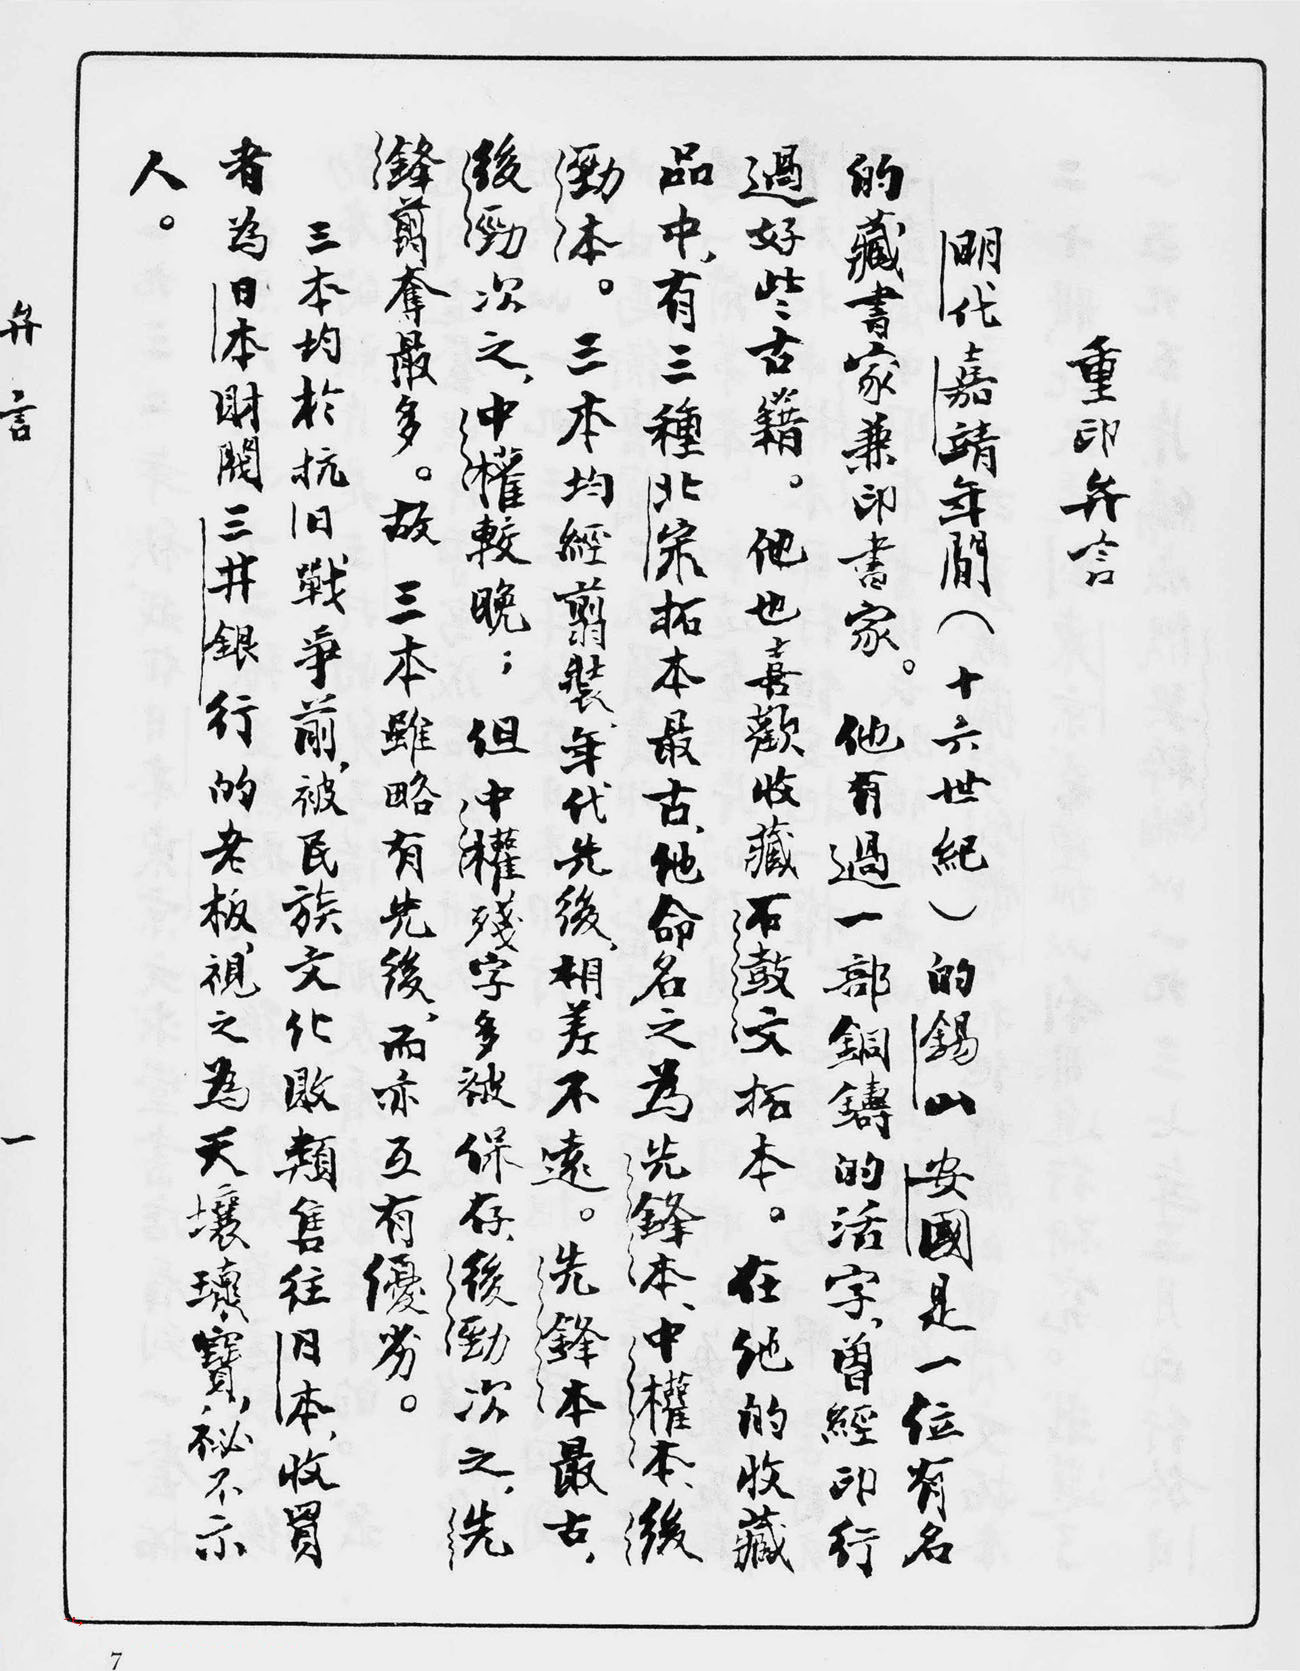 重印弁言
明代嘉靖年間(十六世紀)的錫山安國是一位有名
的藏書家兼印書家。他有過一部銅鑄的活字,曾經印行
過好些古籍。他也喜歡收藏石鼓文拓本。在他的收藏
品中,有三種北宋拓本最古,他命名之為先鋒本、中權本、後
勁本。三本均經剪裝,年代先後,相差不遠。先鋒本最古,
後勁次之,中權較晚;但中權殘字多被保存,後勁次之,先
鋒剪奪最多。故三本雖略有先後,而亦互有優劣。
三本均於抗日戰爭前,被民族文化敗類售往日本,收買
者為日本財閥三井銀行的老板,視之為天壤瓌寶,祕不示
人。
弁言
一
7